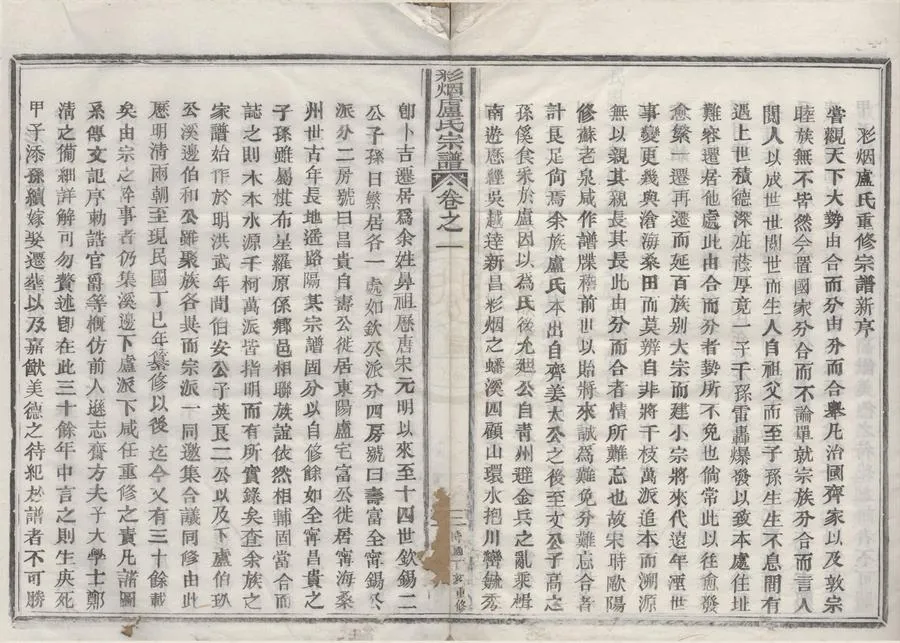 彩烟盧氏重修宗譜新序
嘗觀天下大勢由合而分由分而合舉凡治國齊家以及敦宗
睦族無不皆然今置國家分合而不論單就宗族分合而言人
閱人以成世世閱世而生人自祖父而至子孫生生不息間有
遇上世積德深流蔭厚竟一子千孫雷轟爆發以致本處住址
難容還居他處此由合而分者勢所不免也倘常此以往愈發
愈繁一遷再遷而延百族別大宗而建小宗將來代遠年湮世
事變更幾與滄海桑田而莫辨自非將千枝萬派追本而溯源
無以親其親長其長此由分而合者情所難忘也故宋時歐陽
修蘇老泉咸作譜牒稽前世以貽將來誠為難免分難忘合者
計良足尚焉余族盧氏本出自齊姜太公之後至文公子高之
孫傒食采於盧因以為氏後允廻公自青州避金兵之亂乘楫
南遊歷經吳越達新昌彩烟之蟠溪四顧山環水抱川巒毓秀
彩烟盧氏宗譜
卷之一
二
民國丁亥重修
卽卜吉遷居為余姓鼻祖歷唐宋元明以來至十四世欽錫二
公子孫日繁居各一處如欽公派分四房號曰壽富全寧錫公
派分二房號曰昌貴自壽公徙居東陽盧宅富公徙居甯海桑
州世古年長地遥路隔其宗譜固分以自修餘如全甯昌貴之
子孫雖屬棋布星羅原係鄉邑相聯族誼依然相輔固當合而
誌之則木本水源千柯萬派皆指明而有所實錄矣查余族之
家譜始作於明洪武年間伯安公子英艮二公以及下盧伯玖
公溪邊伯和公雖聚族各異而宗派一同邀集合議同修由此
歷明清兩朝至現民國丁巳年纂修以後迄今又有三十餘載
矣由宗之幹事者仍集溪邊下盧派下咸任重修之責凡諸圖
系傳文記序勅誥官爵等概仿前人遜志齋方夫子大學士鄭
清之備細詳解可勿贅述卽在此三十餘年中言之則生庚死
甲子添孫續嫁娶遷葬以及嘉猷美德之待紀於譜者不可勝